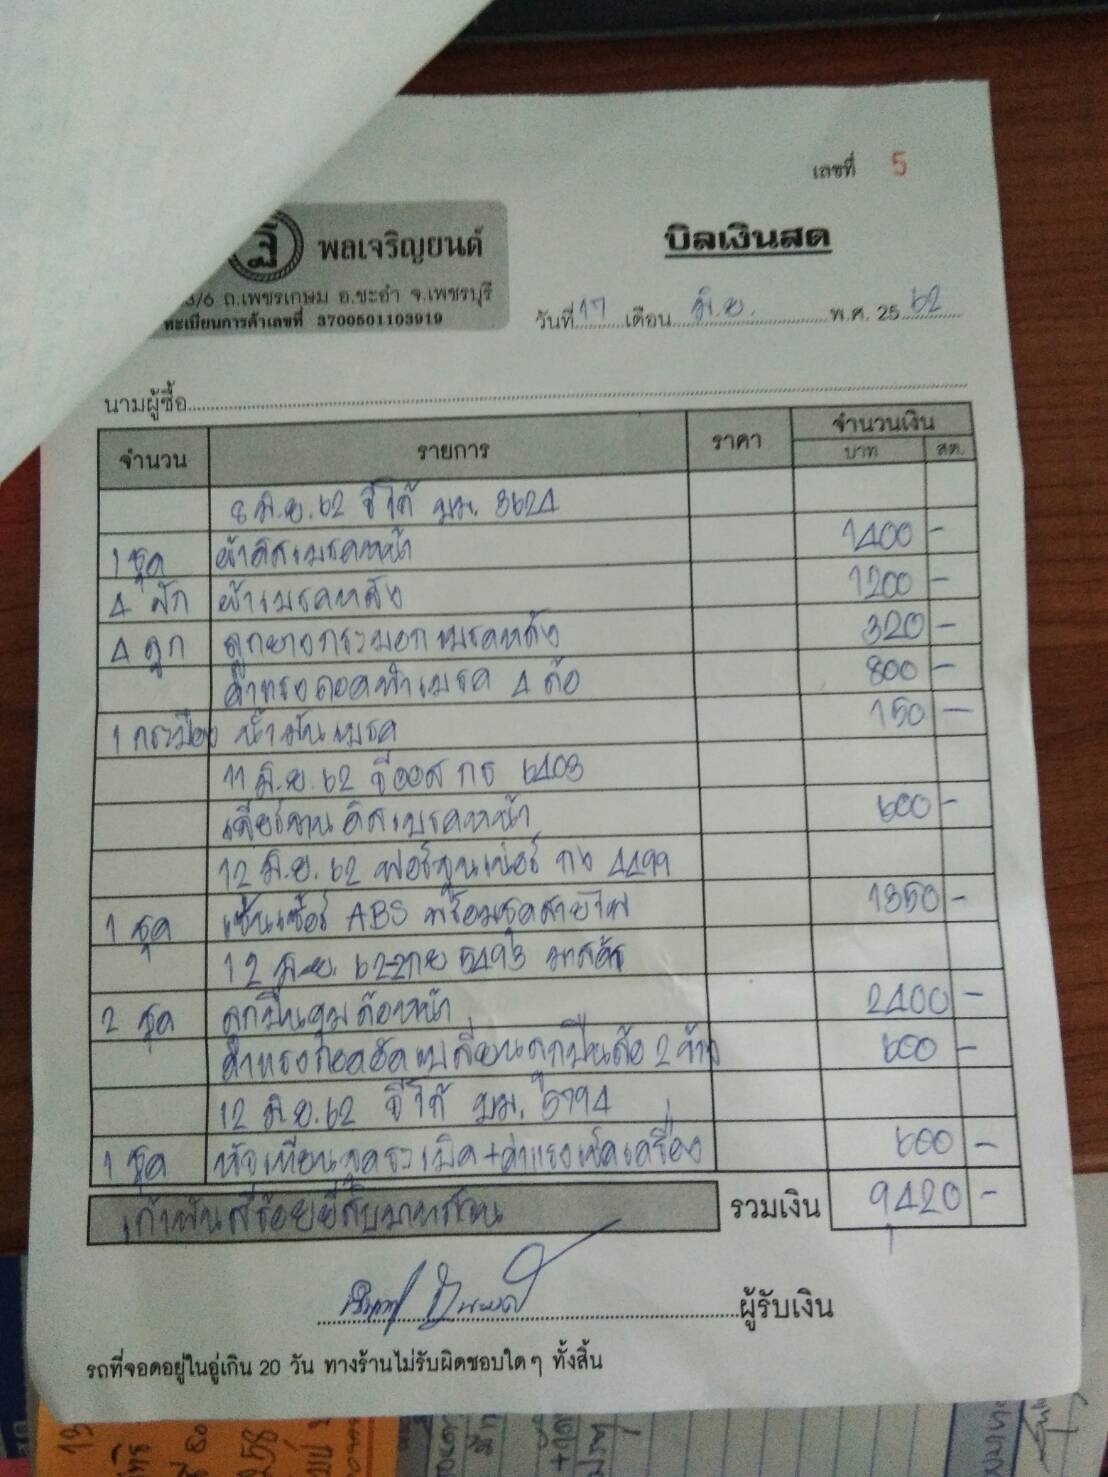 เลขที่ 5
พลเจริญยนต์
บิลเงินสด
3/6 ถ.เพชรเกษม อ.ชะอำ จ.เพชรบุรี
ทะเบียนการค้าเลขที่ 3700501103919
วันที่ 17 เดือน มิ.ย. พ.ศ. 2562
นามผู้ซื้อ
จำนวน รายการ ราคา จำนวนเงิน
บาท สต.
8 มิ.ย. 62 วีโก้ บม. 3624
1 ชุด ผ้าดิสเบรคหน้า 1400 -
4 ฝัก ผ้าเบรคหลัง 1200 -
4 ลูก ลูกยางกระบอกเบรคหลัง 320 -
ค่าแรงถอดทำเบรค 4 ล้อ 800 -
1 กระป๋อง น้ำมันเบรค 150 -
11 มิ.ย. 62 วีออส กธ 6403
เจียร์จานดิสเบรคหน้า 600 -
12 มิ.ย. 62 ฟอร์จูนเนอร์ กง 4499
1 ชุด เซ็นเซอร์ ABS พร้อมชุดสายไฟ 1350 -
12 มิ.ย. 62 2กย 5493 มาสด้า
2 ชุด ลูกปืนดุมล้อหน้า 2400 -
ค่าแรงถอดอัดเปลี่ยนลูกปืนล้อ 2 ข้าง 600 -
12 มิ.ย. 62 วีโก้ บม. 5794
1 ชุด หัวเทียนจุดระเบิด+ค่าแรงเช็คเครื่อง 600 -
เก้าพันสี่ร้อยยี่สิบบาทถ้วน รวมเงิน 9420 -
ผู้รับเงิน
รถที่จอดอยู่ในอู่เกิน 20 วัน ทางร้านไม่รับผิดชอบใดๆ ทั้งสิ้น